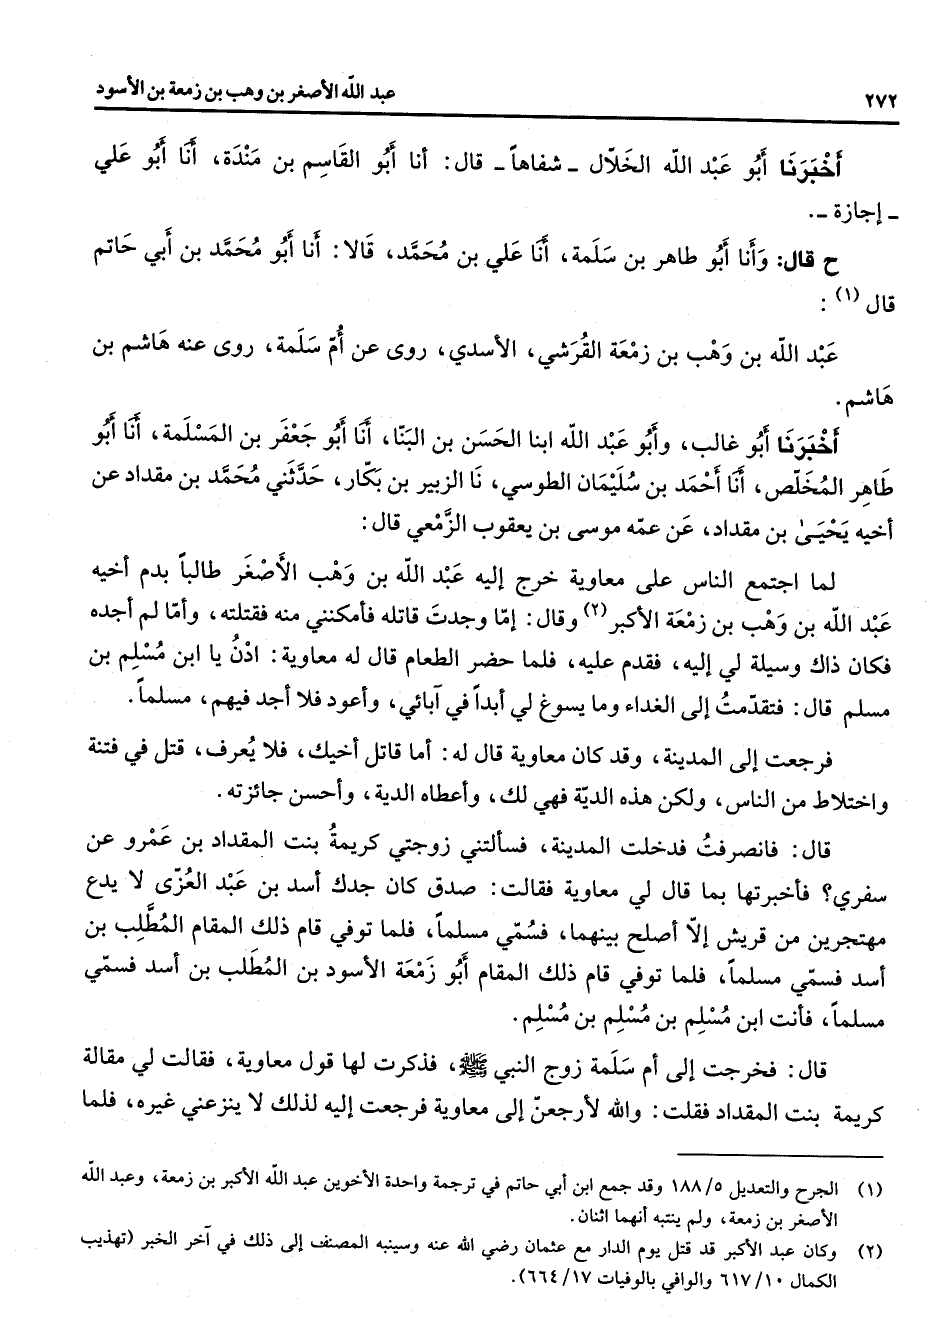 ٢٧٢
عبد الله الأصغر بن وهب بن زمعة بن الأسود
أَخْبَرَنَا أَبُو عَبْد الله الخَلّال ـ شفاهاً ـ قال: أنا أَبُو القَاسِم بن مَنْدَة، أَنَا أَبُو عَلي
ـ إجازة ـ.
ح قال: وَأَنا أَبُو طاهر بن سَلَمة، أَنَا عَلي بن مُحَمَّد، قَالا: أَنا أَبُو مُحَمَّد بن أَبي حَاتم
قال (١) :
عَبْد الله بن وَهْب بن زمْعَة القُرَشي، الأسدي، روى عن أُمّ سَلَمة، روى عنه هَاشم بن
هَاشم.
أَخْبَرَنَا أَبُو غالب، وأَبُو عَبْد الله ابنا الحَسَن بن البَنّا، أَنَا أَبُو جَعْفَر بن المَسْلَمة، أَنَا أَبُو
طَاهِر المُخَلّص، أَنَا أَحْمَد بن سُلَيْمَان الطوسي، نَا الزبير بن بَكّار، حَدَّثَني مُحَمَّد بن مقداد عن
أخيه يَحْيَىٰ بن مقداد، عَن عمّه موسى بن يعقوب الزَّمْعي قال:
لما اجتمع الناس على معاوية خرج إليه عَبْد الله بن وَهْب الأَصْغَر طالباً بدم أخيه
عَبْد الله بن وَهْب بن زمْعَة الأكبر (٢) وقال: إمّا وجدتَ قاتله فأمكنني منه فقتلته، وأمّا لم أجده
فكان ذاك وسيلة لي إليه، فقدم عليه، فلما حضر الطعام قال له معاوية: ادْنُ يا ابن مُسْلِم بن
مسلم قال: فتقدّمتُ إلى الغداء وما يسوغ لي أبداً في آبائي، وأعود فلا أجد فيهم، مسلماً.
فرجعت إلى المدينة، وقد كان معاوية قال له: أما قاتل أخيك، فلا يُعرف، قتل في فتنة
واختلاط من الناس، ولكن هذه الديّة فهي لك، وأعطاه الدية، وأحسن جائزته.
قال: فانصرفتُ فدخلت المدينة، فسألتني زوجتي كريمةُ بنت المقداد بن عَمْرو عن
سفري؟ فأخبرتها بما قال لي معاوية فقالت: صدق كان جدك أسد بن عَبْد العُزّى لا يدع
مهتجرين من قريش إلّا أصلح بينهما، فسُمّي مسلماً، فلما توفي قام ذلك المقام المُطَّلِب بن
أسد فسمّي مسلماً، فلما توفي قام ذلك المقام أَبُو زَمْعَة الأسود بن المُطَلب بن أسد فسمّي
مسلماً، فأنت ابن مُسْلِم بن مُسْلِم بن مُسْلِم.
قال: فخرجت إلى أم سَلَمة زوج النبي ﷺ، فذكرت لها قول معاوية، فقالت لي مقالة
كريمة بنت المقداد فقلت: والله لأرجعنّ إلى معاوية فرجعت إليه لذلك لا ينزعني غيره، فلما
(١) الجرح والتعديل ٥/ ١٨٨ وقد جمع ابن أبي حاتم في ترجمة واحدة الأخوين عبد الله الأكبر بن زمعة، وعبد الله
الأصغر بن زمعة، ولم ينتبه أنهما اثنان.
(٢) وكان عبد الأكبر قد قتل يوم الدار مع عثمان رضي الله عنه وسينبه المصنف إلى ذلك في آخر الخبر (تهذيب
الكمال ١٠/ ٦١٧ والوافي بالوفيات ١٧/ ٦٦٤).